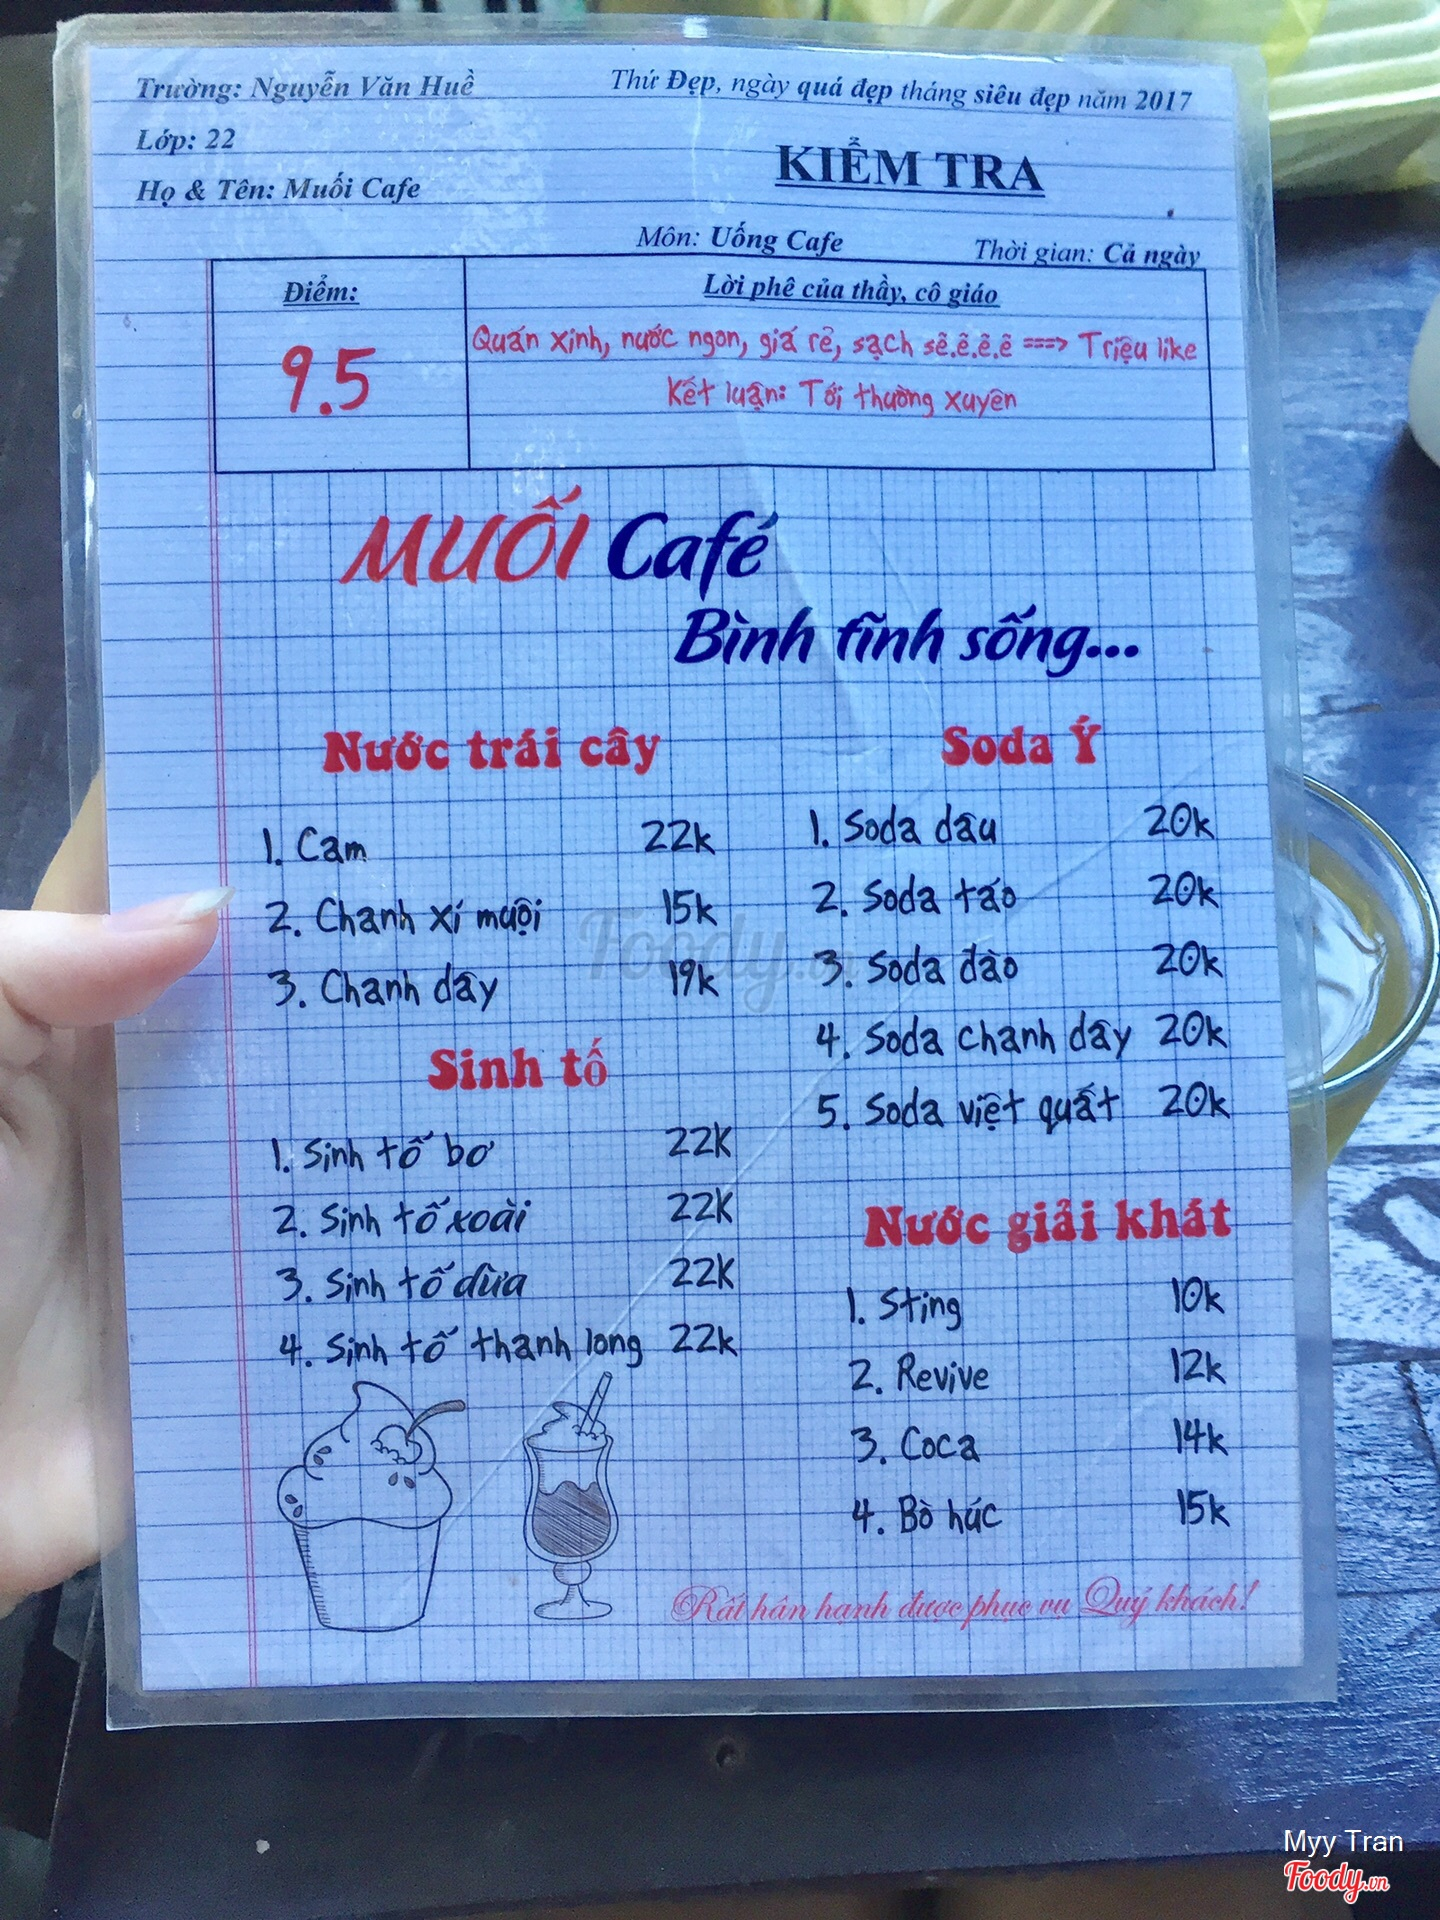 Trường: Nguyễn Văn Huề
Thứ Đẹp, ngày quá đẹp tháng siêu đẹp năm 2017
Lớp: 22
KIỂM TRA
Họ & Tên: Muối Cafe
Môn: Uống Cafe
Thời gian: Cả ngày
Điểm:
9.5
Lời phê của thầy, cô giáo
Quán xinh, nước ngon, giá rẻ, sạch sẽ.ẽ.ẽ.ẽ ===> Triệu like
Kết luận: Tới thường xuyên
MUỐI Café
Bình tĩnh sống...
Nước trái cây
1. Cam 22k
2. Chanh xí muội 15k
3. Chanh dây 19k
Sinh tố
1. Sinh tố bơ 22K
2. Sinh tố xoài 22K
3. Sinh tố dừa 22K
4. Sinh tố thanh long 22k
Soda Ý
1. Soda dâu 20k
2. Soda táo 20k
3. Soda đào 20k
4. Soda chanh dây 20k
5. Soda việt quất 20k
Nước giải khát
1. Sting 10k
2. Revive 12k
3. Coca 14k
4. Bò húc 15k
Rất hân hạnh được phục vụ Quý khách!
Foody.vn
Myy Tran
Foody.vn